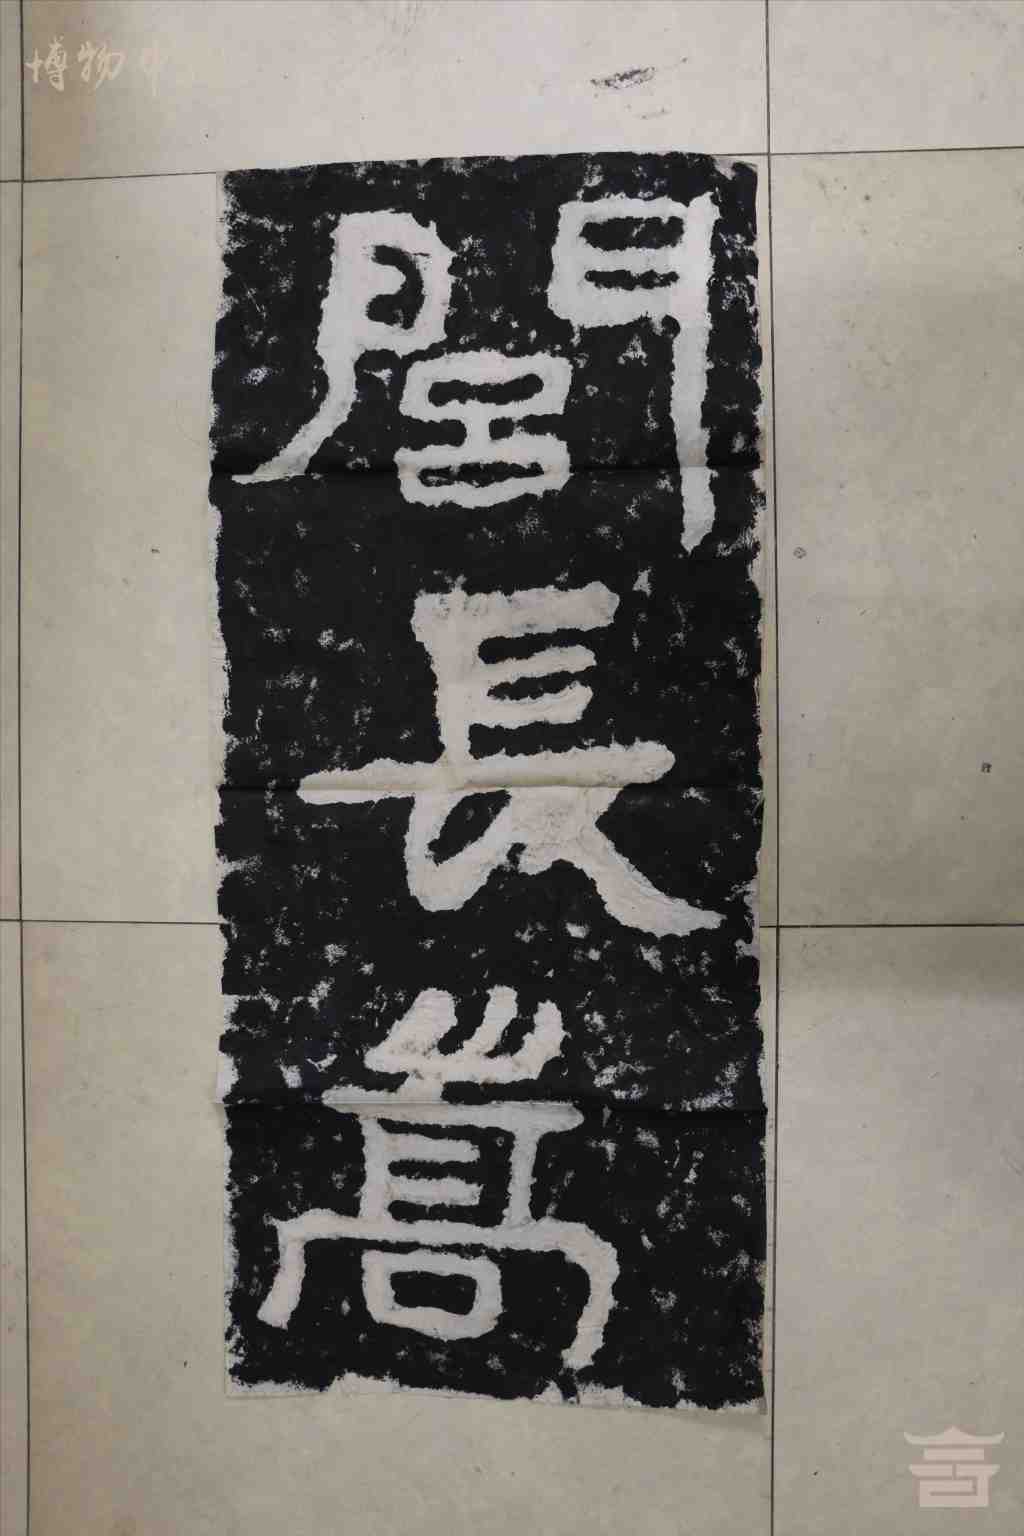 博物中
閭長嵩